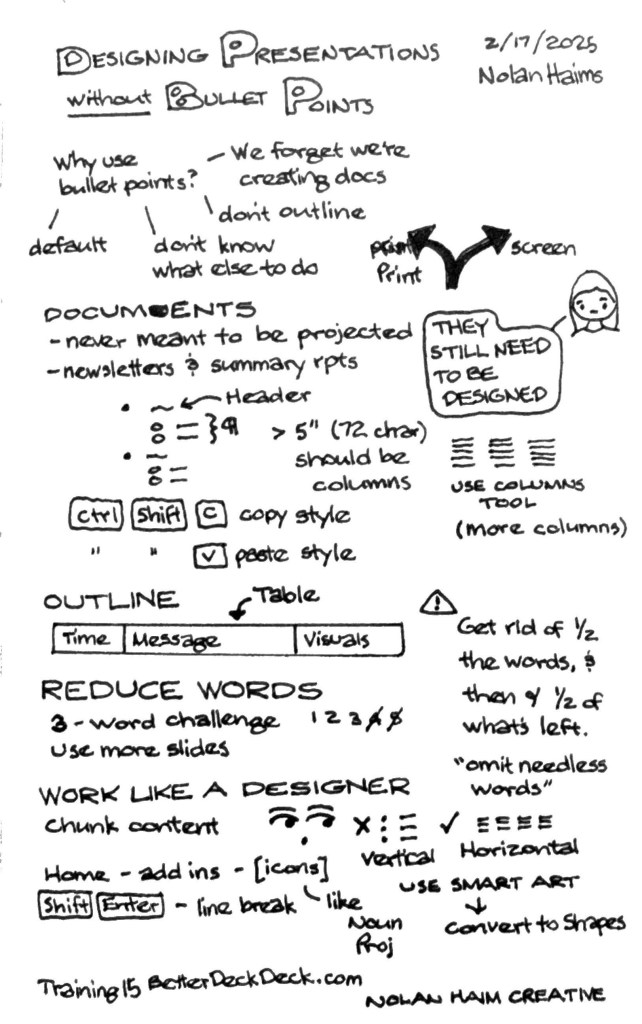 DESIGNING PRESENTATIONS
without BULLET POINTS
2/17/2025
Nolan Haims
Why use
bullet points?
- We forget we're
creating docs
don't outline
default
don't know
what else to do
Print
screen
DOCUMENTS
- never meant to be projected
- newsletters & summary rpts
THEY
STILL NEED
TO BE
DESIGNED
Header
> 5" (72 char)
should be
columns
USE COLUMNS
TOOL
(more columns)
Ctrl Shift C copy style
" " V paste style
OUTLINE
Table
Time Message Visuals
Get rid of 1/2
the words, &
then 1/2 of
what's left.
"omit needless
words"
REDUCE WORDS
3-word challenge 1 2 3 4 5
use more slides
WORK LIKE A DESIGNER
Chunk content
X
✓
Vertical
Horizontal
Home - add ins - [icons]
like
Noun
Proj
Shift Enter - line break
USE SMART ART
Convert to Shapes
Training15 BetterDeckDeck.com
NOLAN HAIM CREATIVE